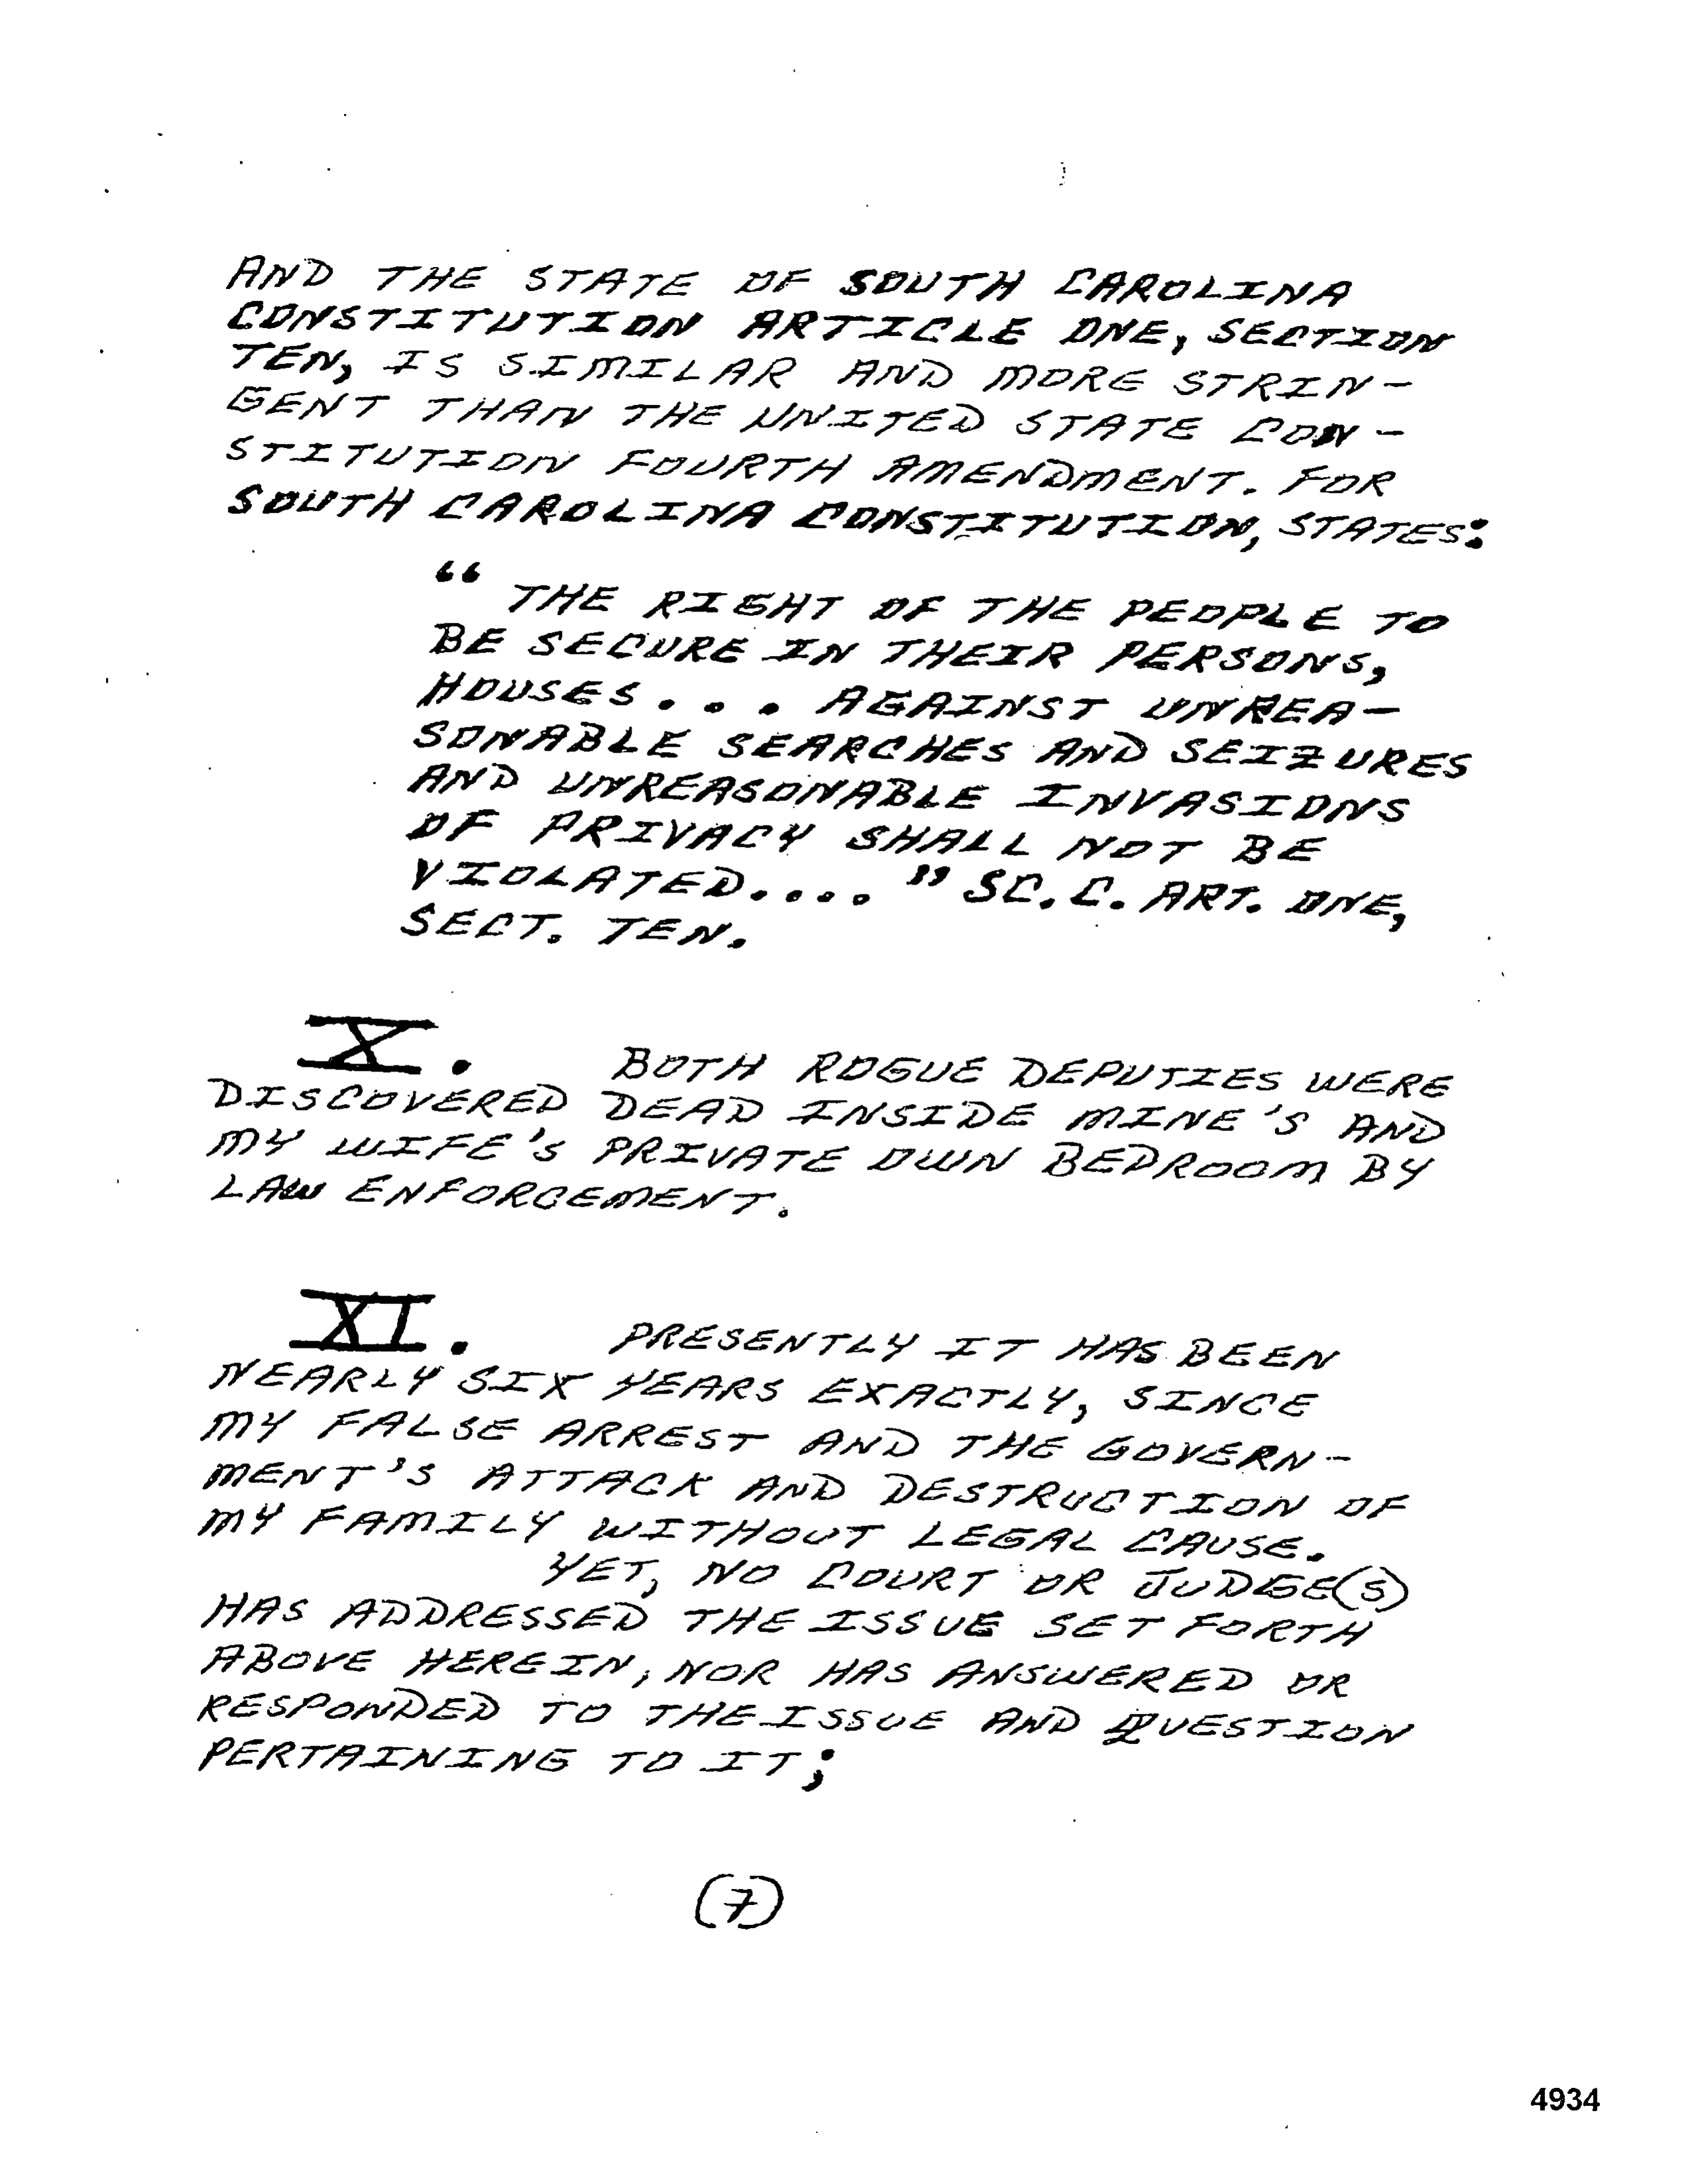 AND THE STATE OF SOUTH CAROLINA
CONSTITUTION ARTICLE ONE, SECTION
TEN, IS SIMILAR AND MORE STRIN-
GENT THAN THE UNITED STATE CON-
STITUTION FOURTH AMENDMENT. FOR
SOUTH CAROLINA CONSTITUTION, STATES:
“ THE RIGHT OF THE PEOPLE TO
BE SECURE IN THEIR PERSONS,
HOUSES . . . AGAINST UNREA-
SONABLE SEARCHES AND SEIZURES
AND UNREASONABLE INVASIONS
OF PRIVACY SHALL NOT BE
VIOLATED. . . . ” SC. C. ART. ONE,
SECT. TEN.
X. BOTH ROGUE DEPUTIES WERE
DISCOVERED DEAD INSIDE MINE'S AND
MY WIFE'S PRIVATE OWN BEDROOM BY
LAW ENFORCEMENT.
XI. PRESENTLY IT HAS BEEN
NEARLY SIX YEARS EXACTLY, SINCE
MY FALSE ARREST AND THE GOVERN-
MENT'S ATTACK AND DESTRUCTION OF
MY FAMILY WITHOUT LEGAL CAUSE.
YET, NO COURT OR JUDGE(S)
HAS ADDRESSED THE ISSUE SET FORTH
ABOVE HEREIN, NOR HAS ANSWERED OR
RESPONDED TO THE ISSUE AND QUESTION
PERTAINING TO IT;
(7)
4934